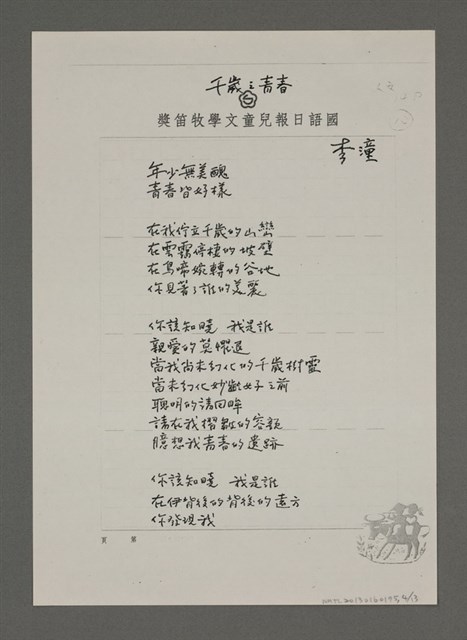 千歲之青春
國語日報兒童文學牧笛獎
李潼
年少無美醜
青春皆好樣
在我佇立千歲的山巒
在雲霧停棲的坡壁
在鳥啼婉轉的谷地
你見著了誰的美麗
你該知曉 我是誰
親愛的莫懼退
當我尚未幻化的千歲樹靈
當未幻化妙齡女子之前
聰明的請回眸
請在我摺皺的容顏
臆想我青春的遺跡
你該知曉 我是誰
在伊背後的背後的遠方
你發現我
第 頁